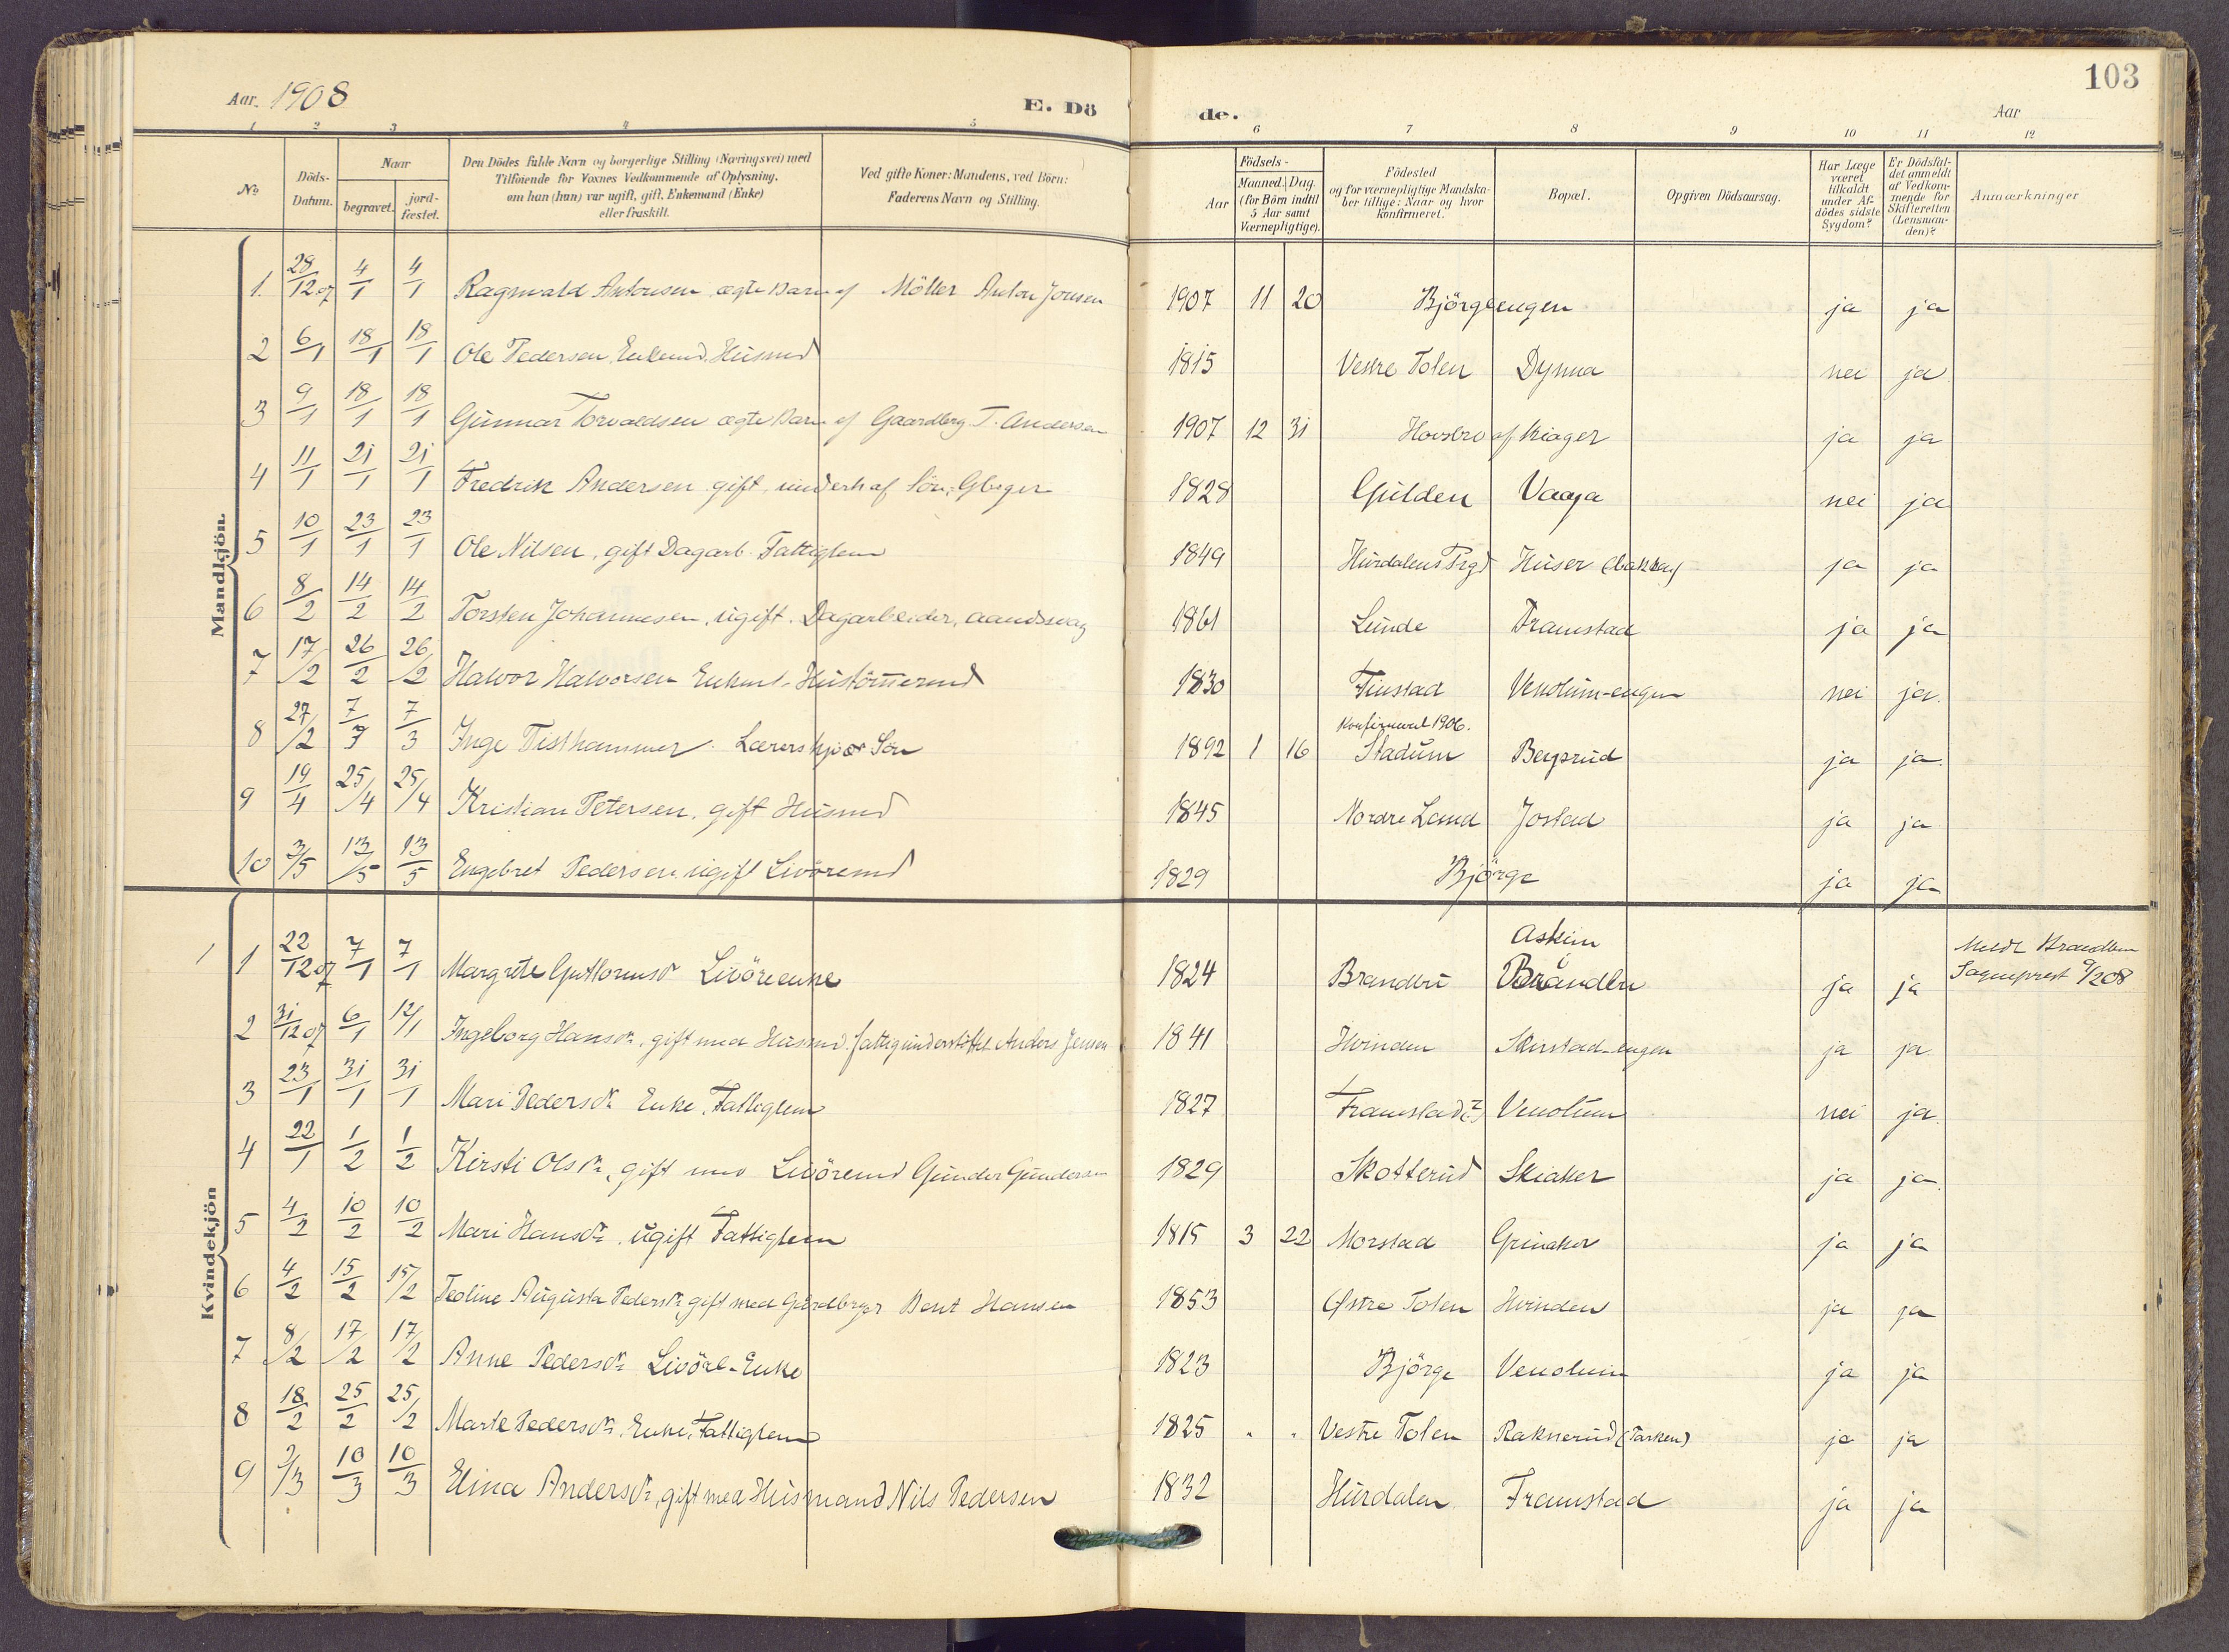 103
Aar. 1908
E. Dö
de.
Aar
1 2 3 4 5 6 7 8 9 10 11 12
No
Döds-
Datum.
Naar
begravet.
jord-
fæstet.
Den Dödes fulde Navn og borgerlige Stilling (Næringsvei) med
Tilföiende for Voxnes Vedkommende af Oplysning,
om han (hun) var ugift, gift, Enkemand (Enke)
eller fraskilt.
Ved gifte Koner: Mandens, ved Börn:
Faderens Navn og Stilling.
Födsels-
Aar
Maaned. Dag.
(for Börn indtil
5 Aar samt
Værnepligtige).
Födested
og for værnepligtige Mandska-
ber tillige: Naar og hvor
konfirmeret.
Bopæl.
Opgiven Dödsaarsag.
Har Læge
været
tilkaldt
under Af-
dödes sidste
Sygdom?
Er Dödsfal-
det anmeldt
af Vedkom-
mende for
Skifteretten
(Lensman-
den)?
Anmærkninger
Mandkjön.
1. 28/12 07 4/1 4/1 Ragnvald Antonsen ægte Barn af Möller Anton Jonsen 1907 11 20 Björgeengen ja ja
2 6/1 18/1 18/1 Ole Pedersen Enkemd. Husmd 1815 Vestre Toten Dynna nei ja
3 9/1 18/1 18/1 Gunnar Torvaldsen ægte Barn af Gaardbrg T. Andersen 1907 12 31 Hovsbro af Kiager ja ja
4 11/1 21/1 21/1 Fredrik Andersen gift, underh af Sön, Gbrger 1828 Gulden Vaaja nei ja
5 10/1 23/1 23/1 Ole Nilsen, gift Dagarb. Fattiglem 1849 Hurdalens Prgd Huser (bakken) ja ja
6 8/2 14/2 14/2 Torsten Johannesen, ugift. Dagarbeider, aandssvag 1861 Lunde Framstad ja ja
7 17/2 26/2 26/2 Halvor Halvorsen Enkmd. Hustömermd 1830 Finstad Venolum-engen nei ja.
Konfirmeret 1906.
8 27/2 7/3 7/3 Inge Tisthammer. Lærerskjær Sön 1892 1 16 Stadum Bergsrud ja ja.
9 19/4 25/4 25/4 Kristian Petersen, gift Husmd 1845 Nordre Land Jostad ja ja
10 3/5 13/5 13/5 Engebret Pedersen ugift Livöremd 1829 Björge ja ja
Kvindekjön
Askim
1 1 22/12 07 7/1 7/1 Margrete Guttormsdr Livöreenke 1824 Brandbu Brandbu ja ja Meldt Brandbu
Sogneprest 9/2 08
2 31/12 07 6/1 12/1 Ingeborg Hansdr, gift med Husmd. fattigunderstöttet Anders Jensen 1841 Hvinden Skirstad-engen ja ja
3 23/1 31/1 31/1 Mari Pedersdr Enke. Fattiglem 1827 Framstad (?) Venolum nei ja.
4 22/1 1/2 1/2 Kirsti Olsdr, gift med Livöremd Gunder Gundersen 1829 Skotterud Skiaker ja ja.
5 4/2 10/2 10/2 Mari Hansdr. ugift Fattiglem 1815 3 22 Morstad Grinaker ja ja
6 4/2 15/2 15/2 Teoline Augusta Pedersdr, gift med Gårdbrger Bent Hansen 1853 Östre Toten Hvinden ja ja
7 8/2 17/2 17/2 Anne Pedersdr Livöre-Enke 1823 Björge Venolum ja ja
8 18/2 25/2 25/2 Marte Pedersdr. Enke. Fattiglem 1825 Vestre Toten Raknerud (Tarken) ja ja
9 2/3 10/3 10/3 Elina Andersdr, gift med Husmand Nils Pedersen 1832 Hurdalen Framstad ja ja